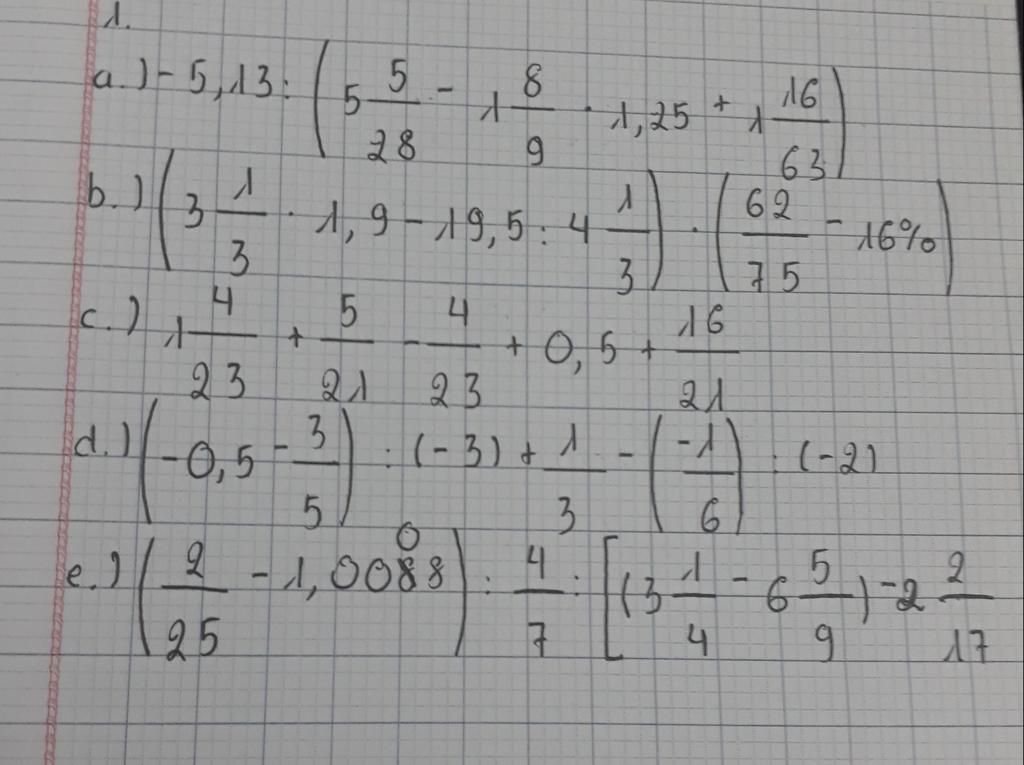 1.
a.) - 5,13 : (5 5/28 - 1 8/9 · 1,25 + 1 16/63)
b.) (3 1/3 · 1,9 - 19,5 : 4 1/3) · (62/75 - 16%)
c.) 1 4/23 + 5/21 - 4/23 + 0,5 + 16/21
d.) (-0,5 - 3/5) : (-3) + 1/3 - (-1/6) : (-2)
e.) (2/25 - 1,0088) : 4/7 : [(3 1/4 - 6 5/9) - 2 2/17